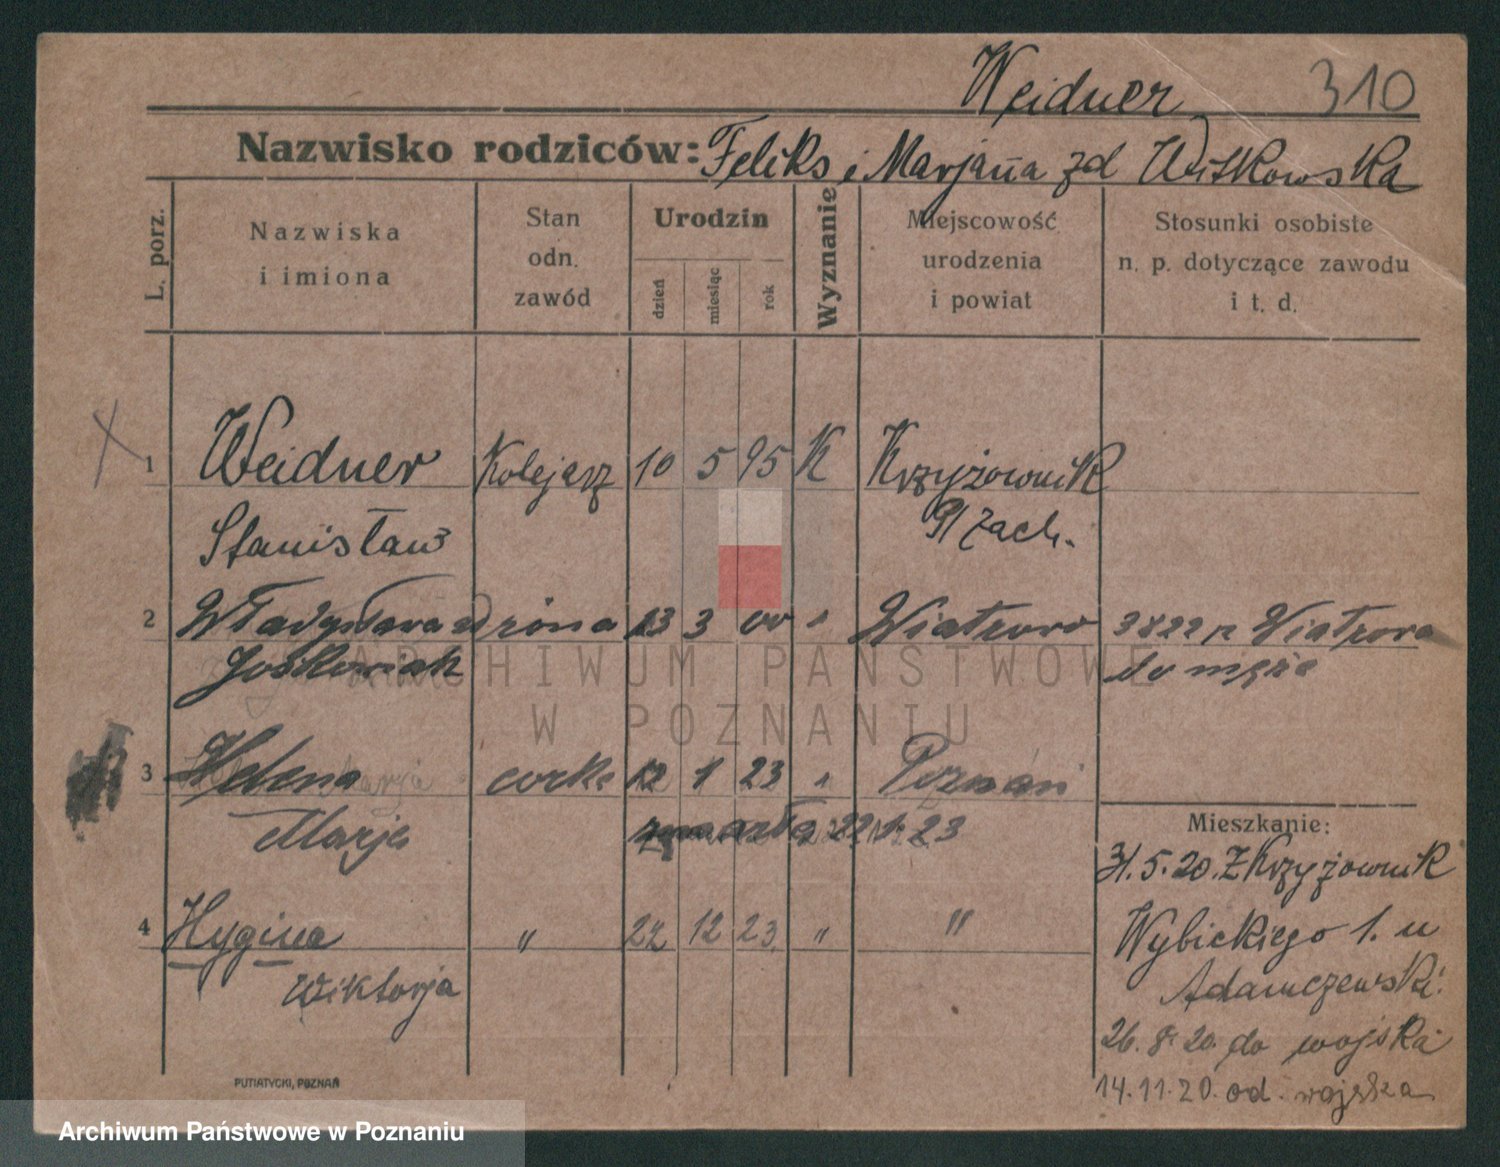 Weidner 310
Nazwisko rodziców: Feliks i Marjanna zd Witkowska
L. porz.
Nazwiska i imiona
Stan odn. zawód
Urodzin
dzień miesiąc rok
Wyznanie
Miejscowość urodzenia i powiat
Stosunki osobiste n. p. dotyczące zawodu i t. d.
1 Weidner Kolejarz 10 5 95 K Krzyżownik
Stanisław P/Zach.
2 Władysława żona 13 3 00 " Wiatrowo 3822 n Wiatrowa
Joskowiak do męża
3 Helena córka 12 1 23 " Poznań
Marja zmarła 22 1. 23
Mieszkanie:
31.5.20. Z Krzyżownik
4 Hygina " 22 12 23 " "
Wiktorja
Wybickiego 1. u
Adamczewski.
26. 8. 20. do wojska
14.11.20. od. wojska
PUTIATYCKI, POZNAŃ
ARCHIWUM PAŃSTWOWE
W POZNANIU
Archiwum Państwowe w Poznaniu